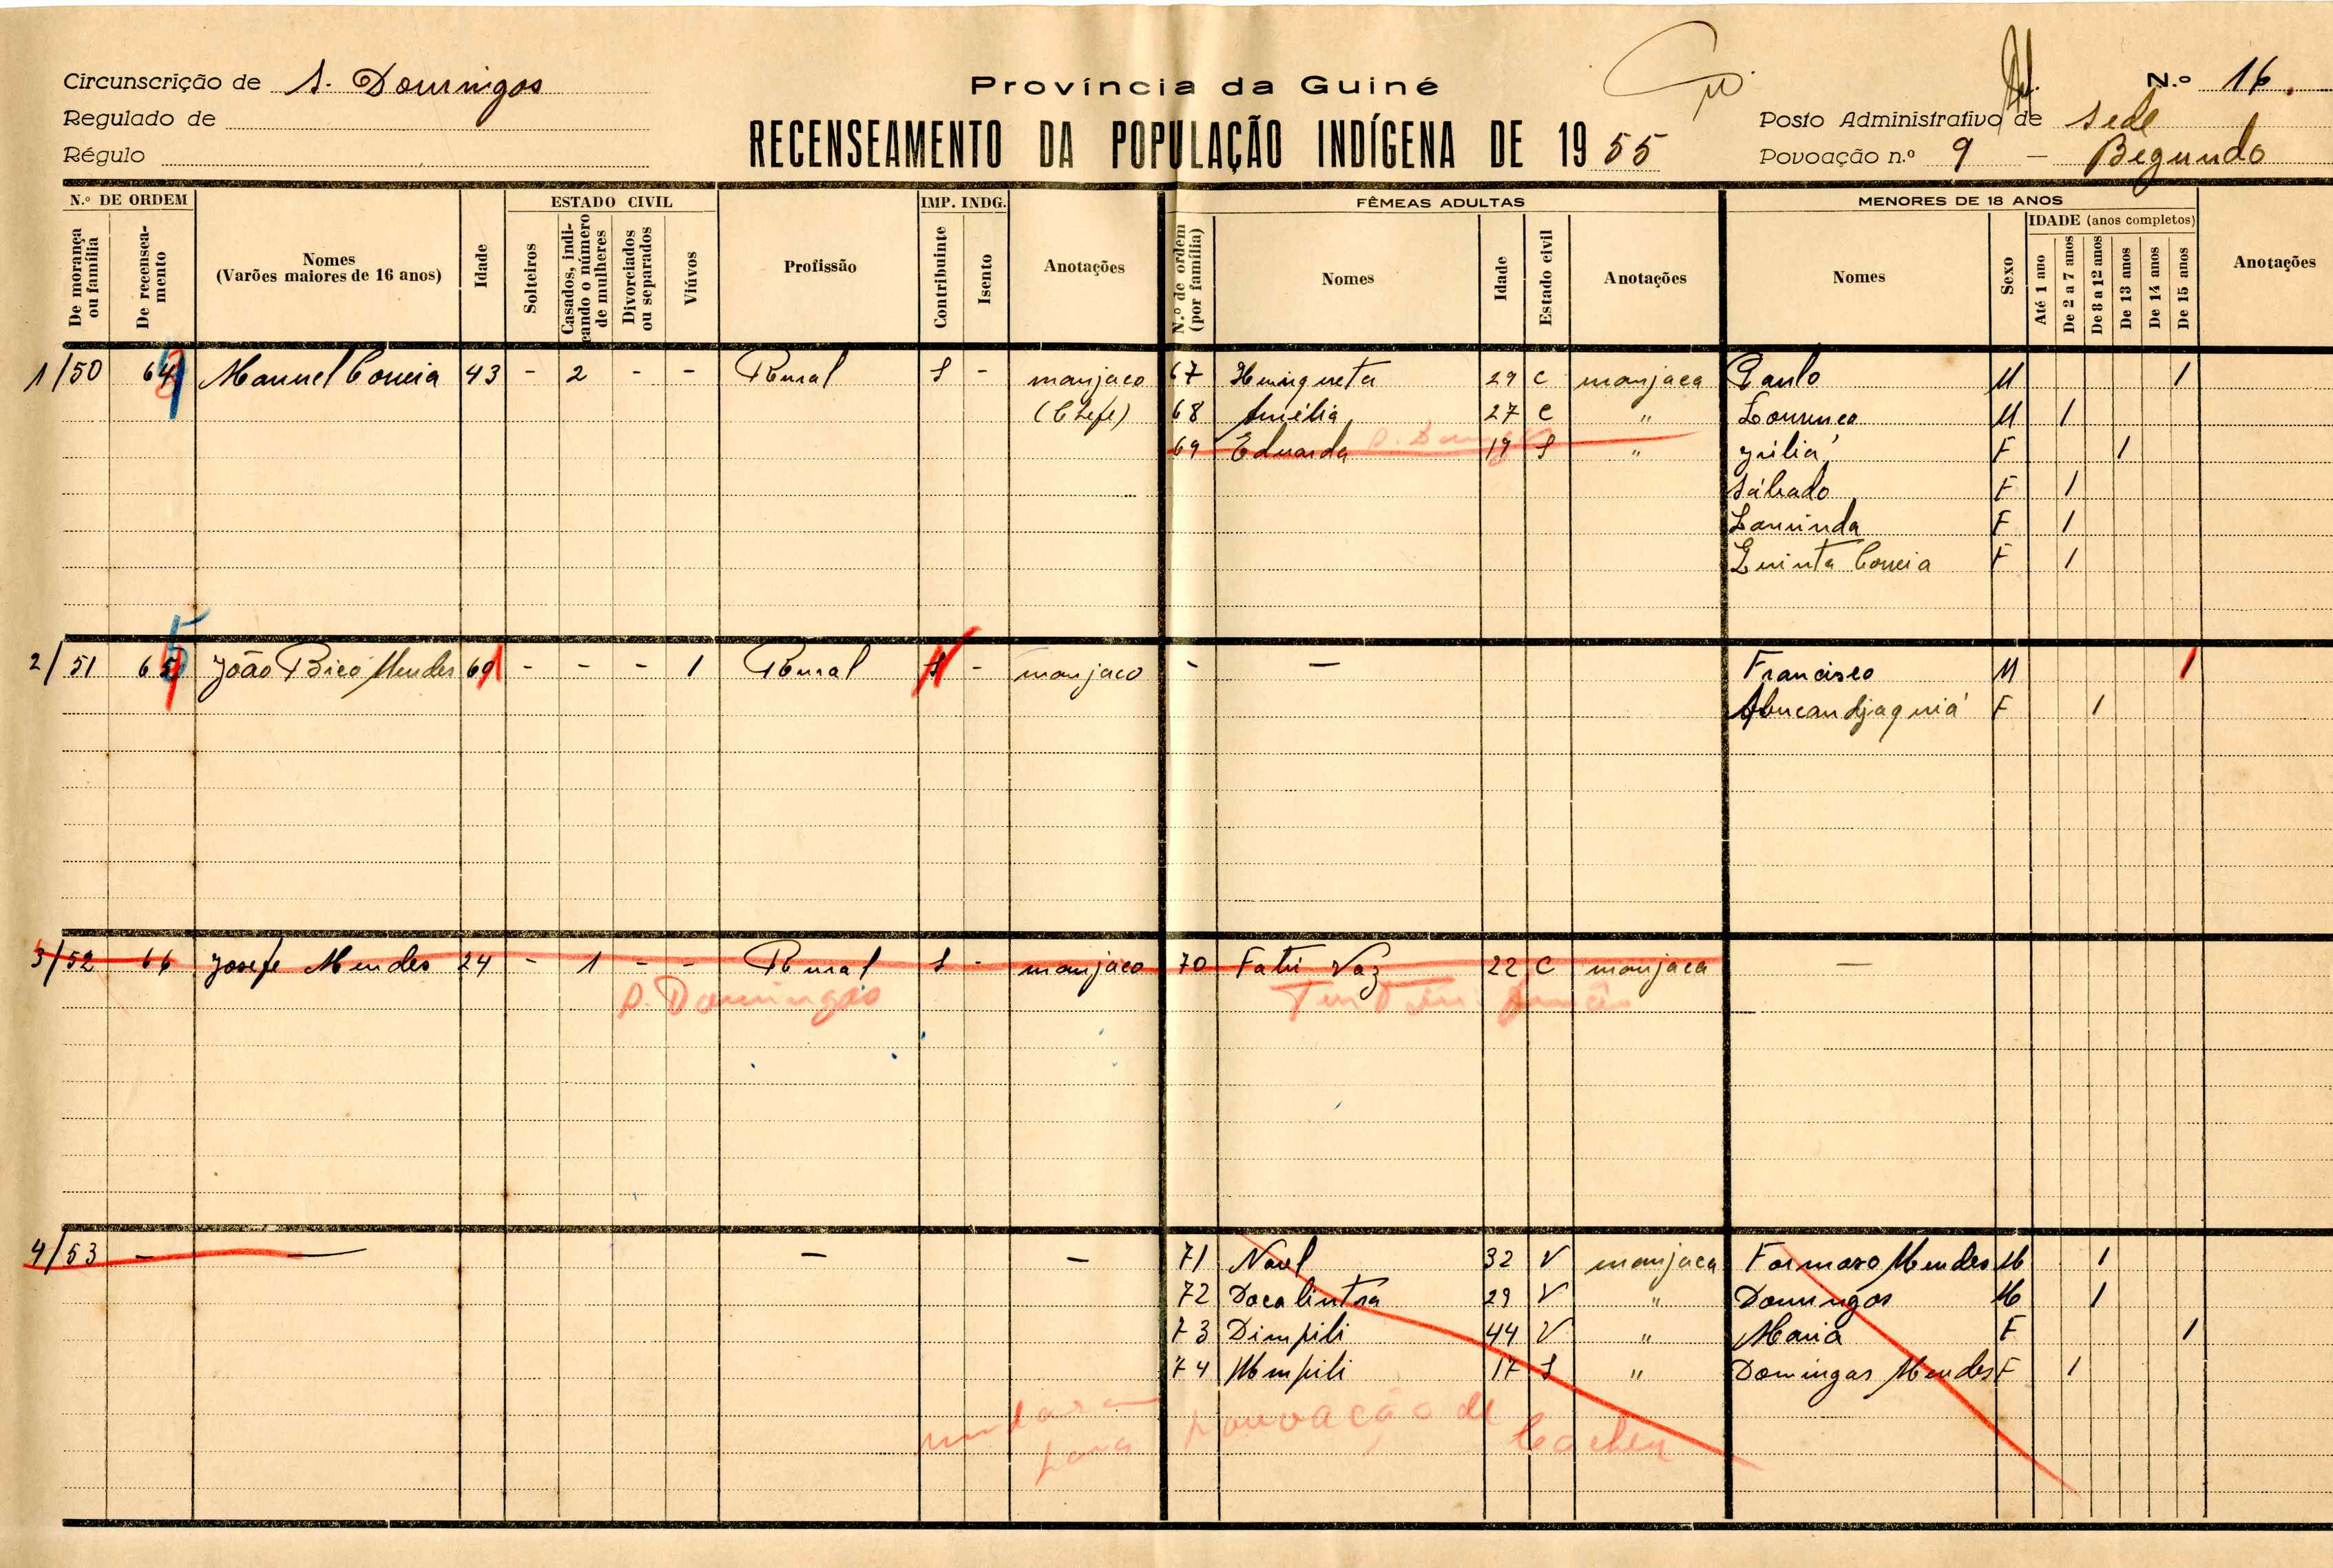 Circunscrição de S. Domingos
Regulado de
Régulo
Província da Guiné
RECENSEAMENTO DA POPULAÇÃO INDÍGENA DE 1955
N.º 16.
Posto Administrativo de Sede
Povoação n.º 9 — Begundo
N.º DE ORDEM
De morança ou família
De recenseamento
Nomes
(Varões maiores de 16 anos)
Idade
ESTADO CIVIL
Solteiros
Casados, indicando o número de mulheres
Divorciados ou separados
Viúvos
Profissão
IMP. INDG.
Contribuinte
Isento
Anotações
FÊMEAS ADULTAS
N.º de ordem (por família)
Nomes
Idade
Estado civil
Anotações
MENORES DE 18 ANOS
Nomes
Sexo
IDADE (anos completos)
Até 1 ano
De 2 a 7 anos
De 8 a 12 anos
De 13 anos
De 14 anos
De 15 anos
Anotações
1/50 64 Manuel Correia 43 - 2 - - Rural S - manjaco 67 Henriqueta 29 C manjaca Paulo M 1
(Chefe) 68 Amélia 27 C " Lourenco M 1
69 Eduarda 19 S " Júlia F 1
Sábado F 1
Laurinda F 1
Quinta Correia F 1
2/51 65 João Bico Mendes - - - 1 Rural S - manjaco - — Francisco M 1
F 1
3/52 66 Josefe Mendes 24 - 1 - - Rural S - manjaco 70 Fatu Vaz 22 C manjaca —
S. Domingos
4/53 — — — — 71 Naul 32 V manjaca Formoso Mendes M 1
72 Docalintra 29 V " Domingos M 1
73 Dimpili 44 V " Maria F 1
74 Mempili 17 S " Domingas Mendes F 1
mudaram para povoação de Cacheu